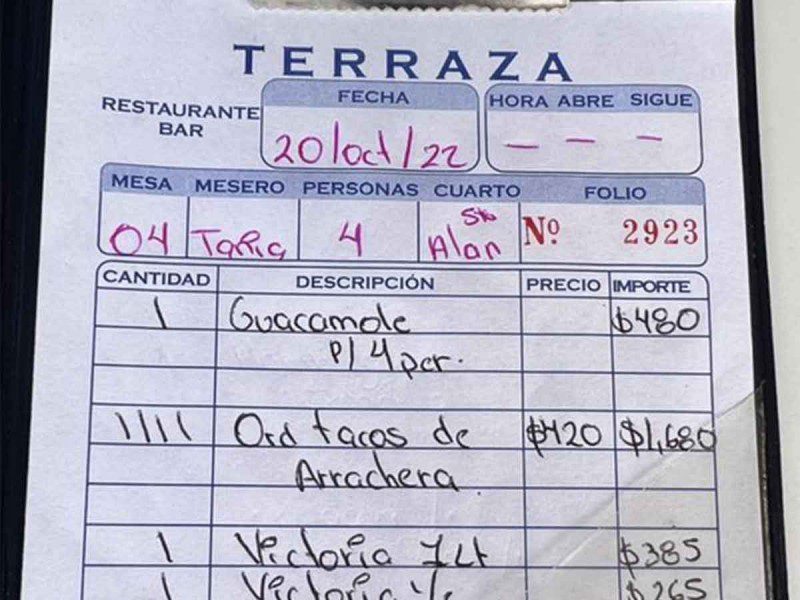 TERRAZA
RESTAURANTE
BAR
FECHA
20/oct/22
HORA ABRE SIGUE
— — —
MESA MESERO PERSONAS CUARTO FOLIO
04 4 Alan Nº 2923
CANTIDAD DESCRIPCIÓN PRECIO IMPORTE
1 Guacamole $480
p/ 4 per.
1111 Ord tacos de $420 $1,680
Arrachera
1 Victoria 1Lt $385
1 Victoria $265